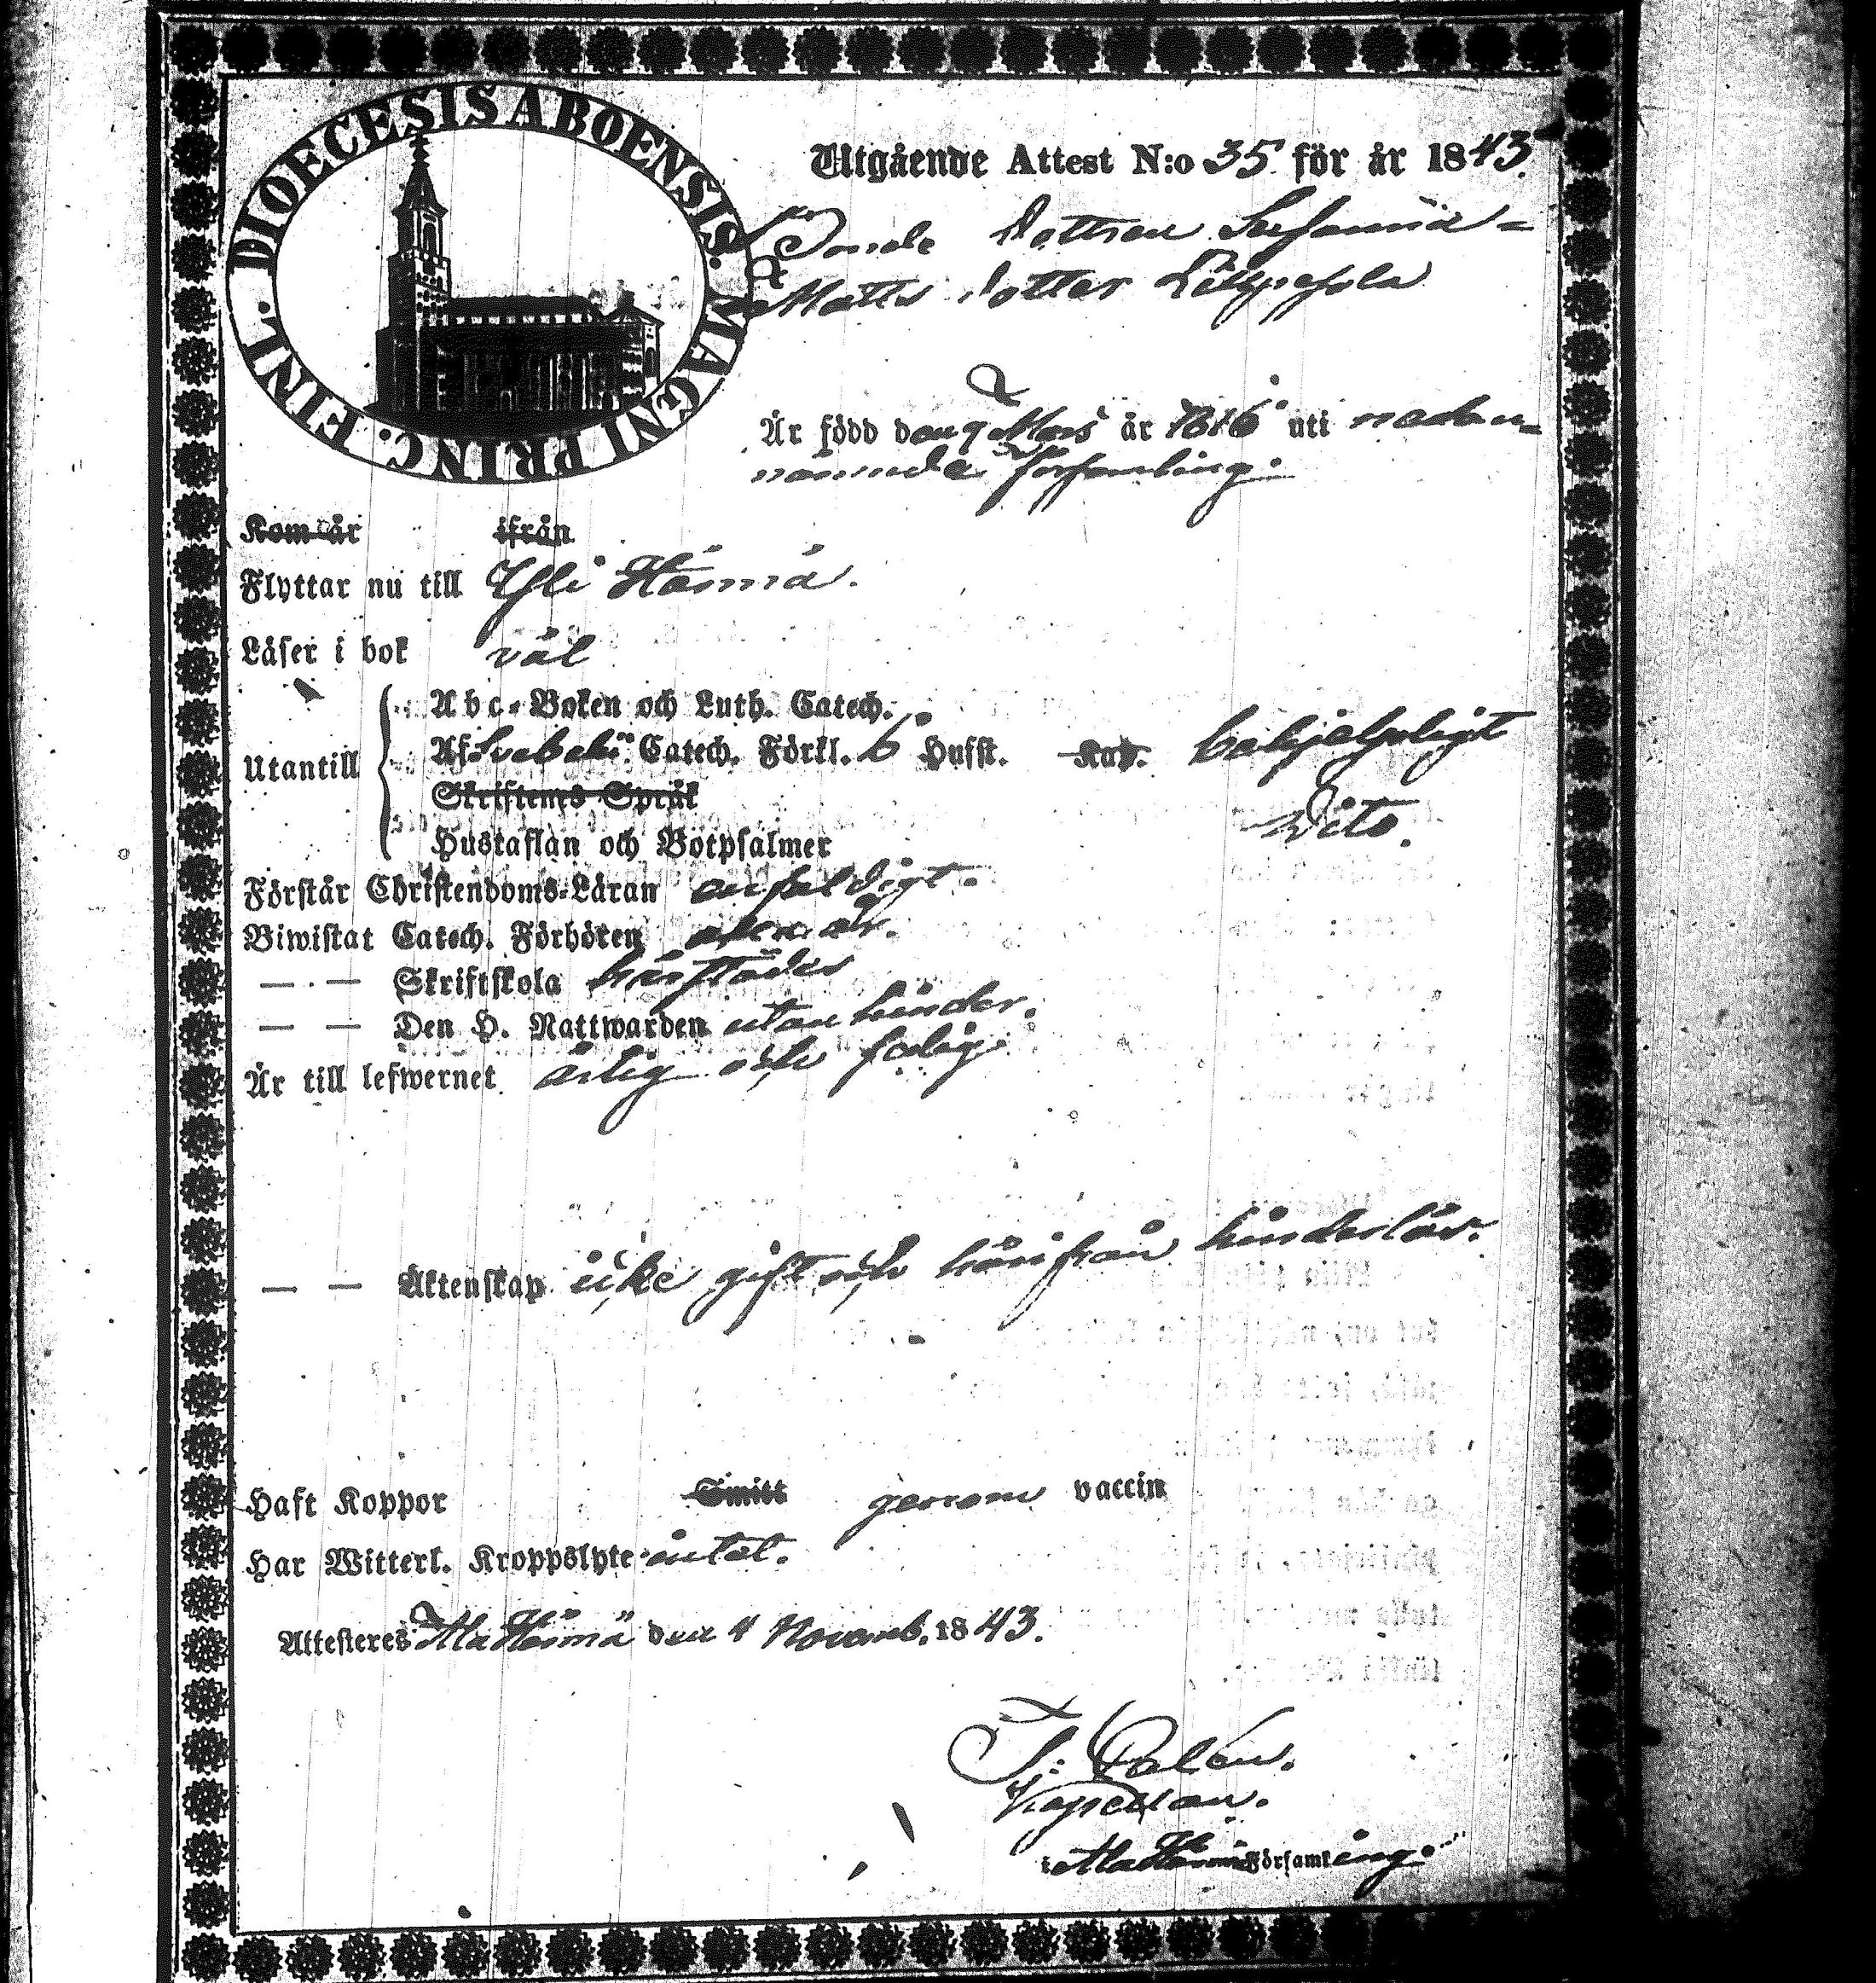 DIOECESIS ABOENSIS. MAGNI PRINC. FINL.
Utgående Attest N:o 35 för år 1843.
Bonde Dottren Susanna
Matts dotter Lillpesola
Är född den 9 Mars år 1816 uti nedan-
nämnde församling.
Kom år ifrån
Flyttar nu till Yli Härmä.
Läser i bok väl
Utantill
Abc-Boken och Luth. Catech.
Af Svebelii Catech. Förkl. 6 Hufst. Kap. behjelpligt
Skriftenes Språk
Hustaflan och Botpsalmer Dito.
Förstår Christendoms-Läran enfaldigt.
Biwistat Catech. Förhören
— — Skriftskola härstädes
— — Den H. Nattwarden utan hinder.
Är till lefwernet ärlig och sedig.
— — Äktenskap icke gift och härifrån hinderlös.
Haft Koppor Smitt genom vaccin
Har Witterl. Kroppslyte intet.
Attesteres Ala Härmä den 4 Novemb. 1843.
Kapellan.
i Ala Härmä Församling.